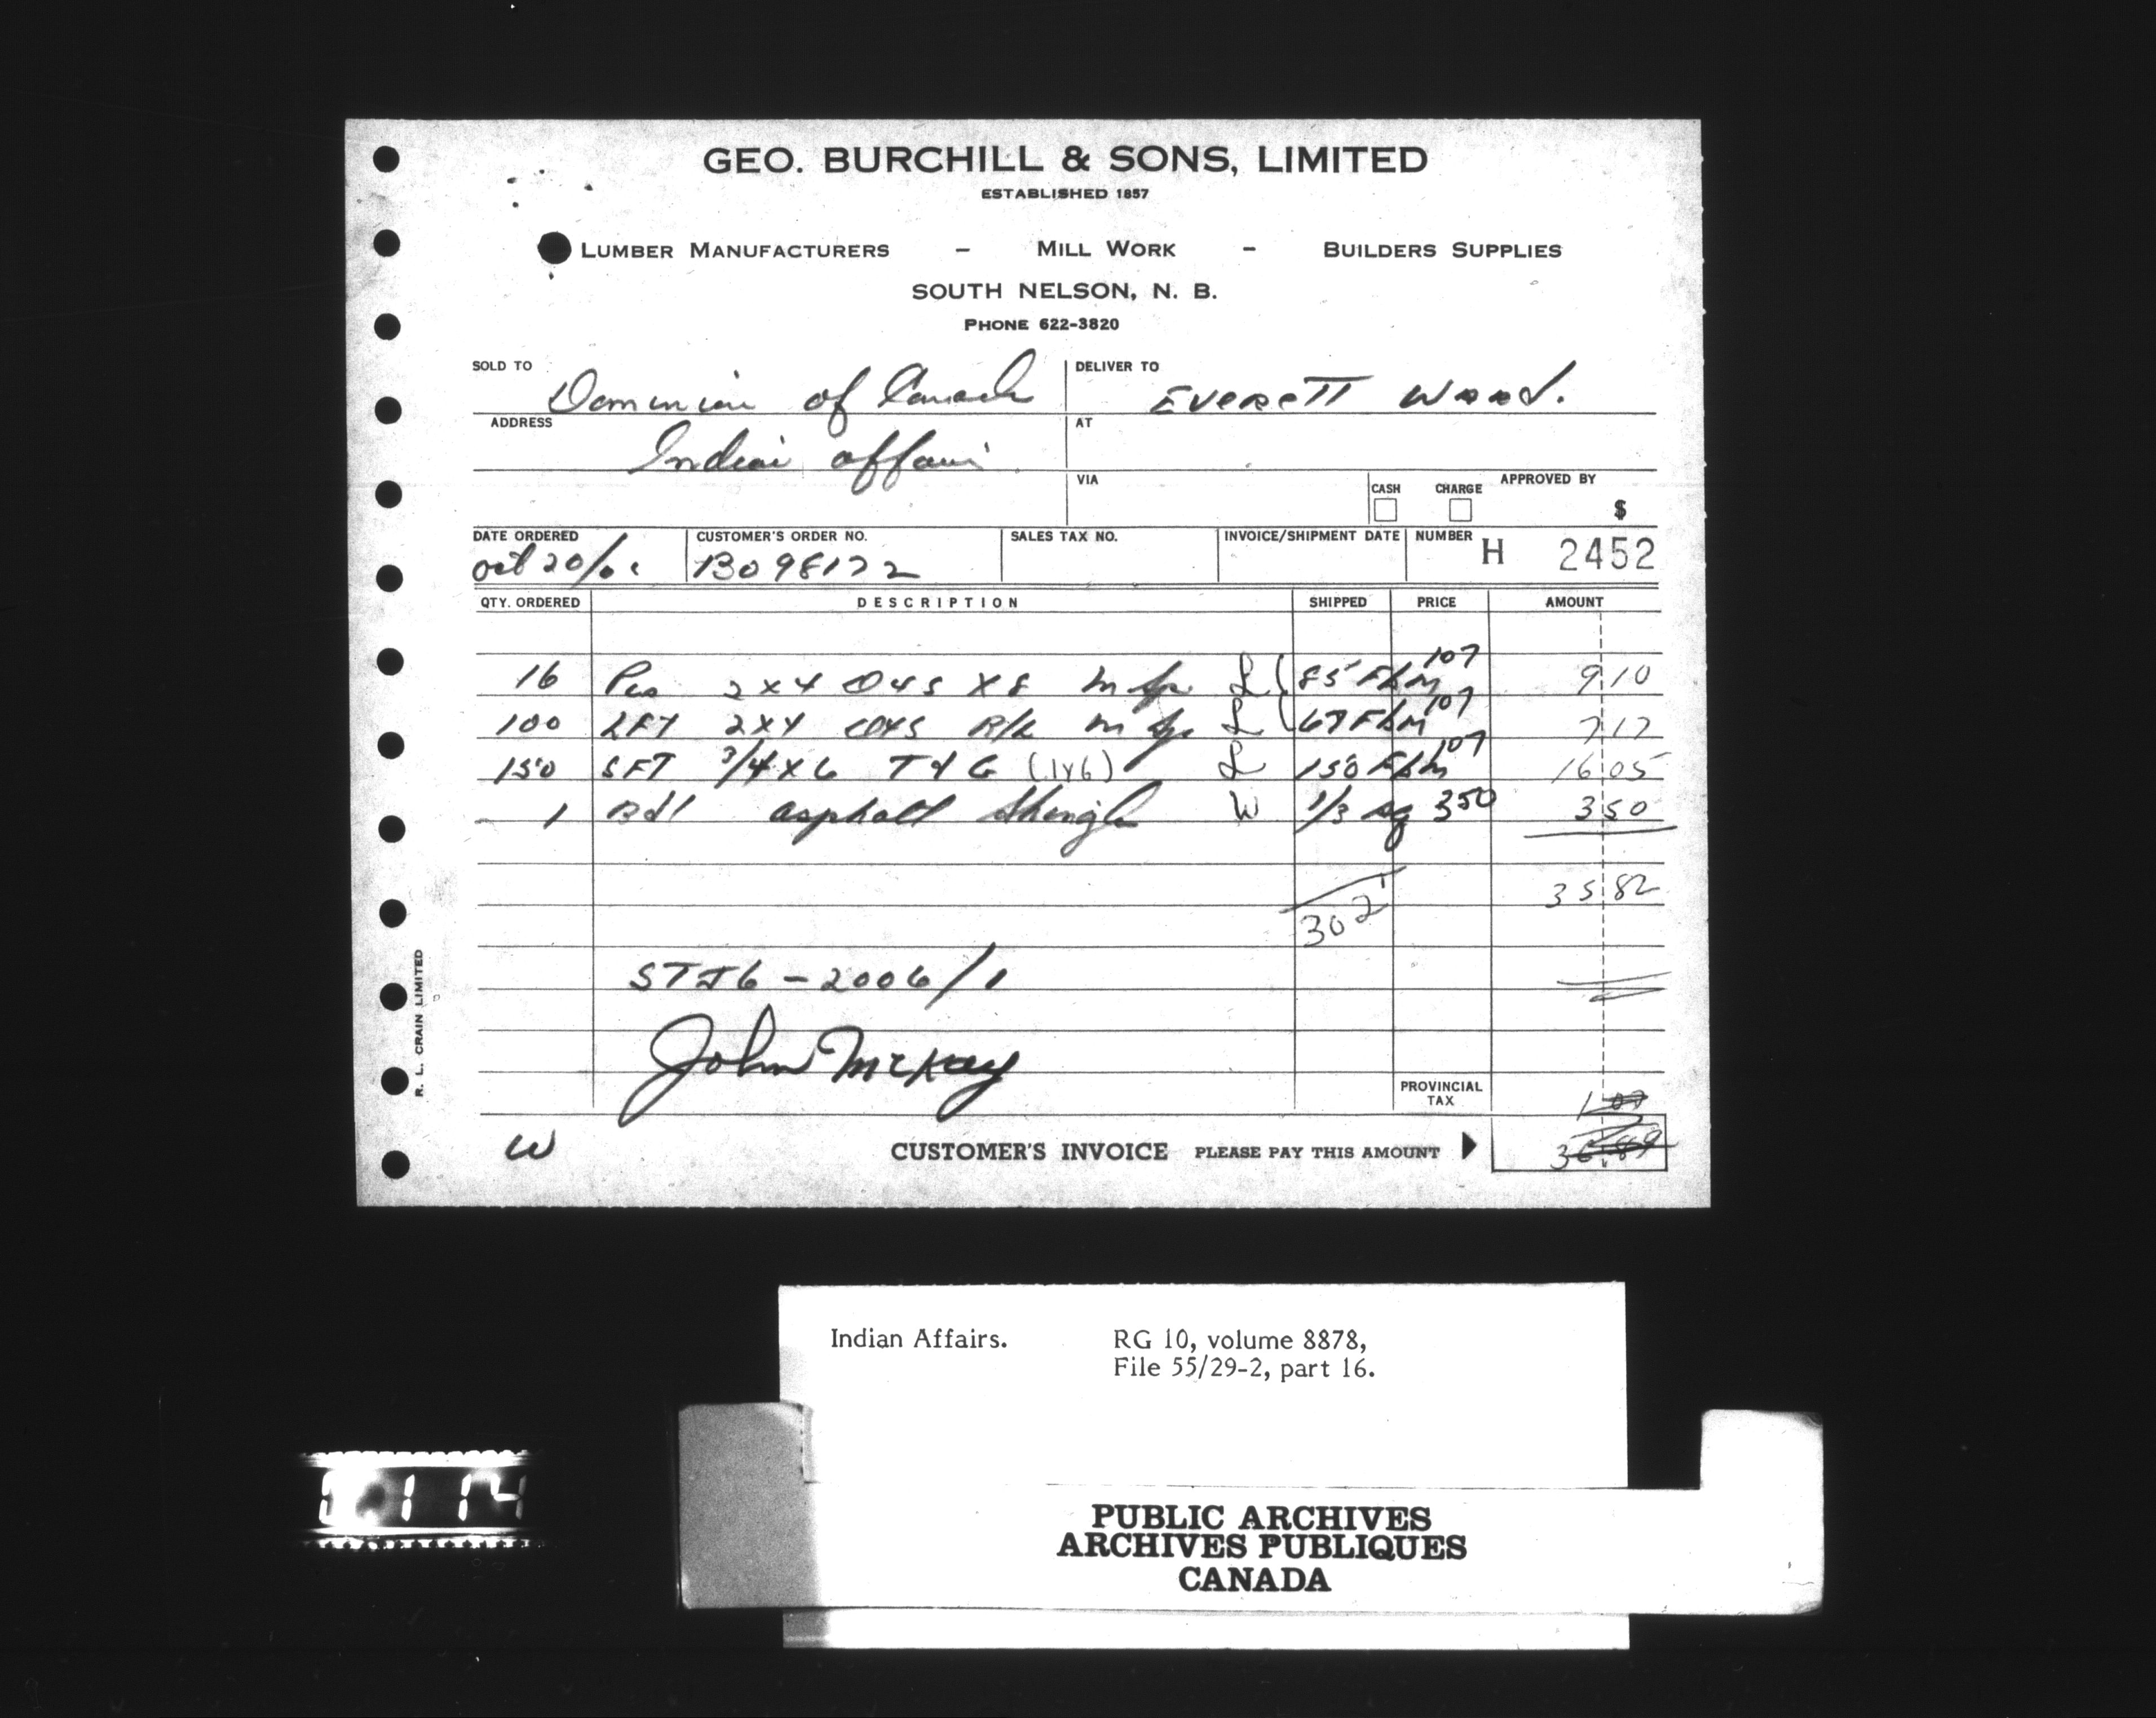 GEO. BURCHILL & SONS, LIMITED
ESTABLISHED 1857
LUMBER MANUFACTURERS - MILL WORK - BUILDERS SUPPLIES
SOUTH NELSON, N. B.
PHONE 622-3820
SOLD TO Dominion of Canada DELIVER TO EVERETT Wood.
ADDRESS Indian affairs AT
VIA CASH CHARGE APPROVED BY
$
DATE ORDERED CUSTOMER'S ORDER NO. SALES TAX NO. INVOICE/SHIPMENT DATE NUMBER H 2452
Oct 20/ B098122
QTY. ORDERED DESCRIPTION SHIPPED PRICE AMOUNT
16 Pcs 2x4 D4S x8 m L 85 FBM 107 9 10
100 LFT 2x4 D4S R/L m L 67 FBM 107 7 17
150 SFT 3/4 x 6 T & G (1x6) L 150 FBM 107 16 05
1 Bdl asphalt Shingle W 1/3 sq 350 3 50
35 82
302'
STJ6-2006/1
John McKay
PROVINCIAL
TAX 1 07
W CUSTOMER'S INVOICE PLEASE PAY THIS AMOUNT 36.89
R. L. CRAIN LIMITED
Indian Affairs. RG 10, volume 8878,
File 55/29-2, part 16.
PUBLIC ARCHIVES
ARCHIVES PUBLIQUES
CANADA